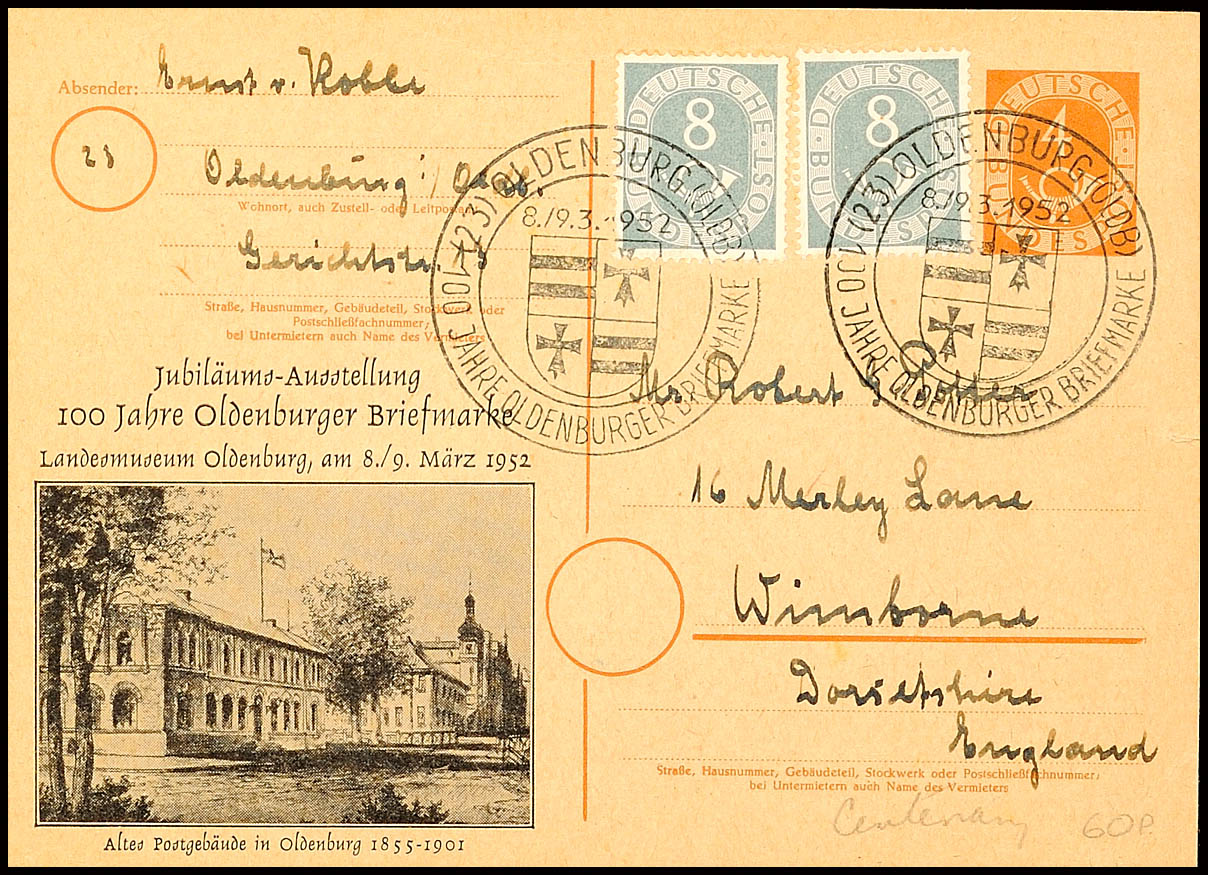 Absender: Ernst v. Kobbe
23
Oldenburg i/Oldb.
Wohnort, auch Zustell- oder Leitpostamt
Gerichtstr. 3
Straße, Hausnummer, Gebäudeteil, Stockwerk oder
Postschließfachnummer;
bei Untermietern auch Name des Vermieters
Jubiläums-Ausstellung
100 Jahre Oldenburger Briefmarke
Landesmuseum Oldenburg, am 8./9. März 1952
Altes Postgebäude in Oldenburg 1855-1901
DEUTSCHE BUNDESPOST
8
DEUTSCHE BUNDESPOST
8
DEUTSCHE BUNDESPOST
4
(23) OLDENBURG (OLDB)
8./9.3.1952
100 JAHRE OLDENBURGER BRIEFMARKE
(23) OLDENBURG (OLDB)
8./9.3.1952
100 JAHRE OLDENBURGER BRIEFMARKE
Mr. Robert G.
16 Merley Lane
Wimborne
Dorsetshire
England
Straße, Hausnummer, Gebäudeteil, Stockwerk oder Postschließfachnummer;
bei Untermietern auch Name des Vermieters
Centenary 60P.